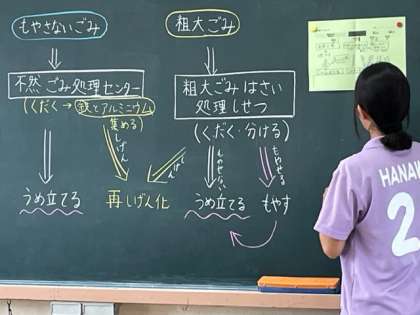 もやさないごみ
粗大ごみ
不然ごみ処理センター
粗大ごみはさい
処理しせつ
(くだく→鉄とアルミニウム
集める)
(くだく・分ける)
しげん
しげん
もやせない
もやせる
うめ立てる
再しげん化
うめ立てる
もやす
HANA
2